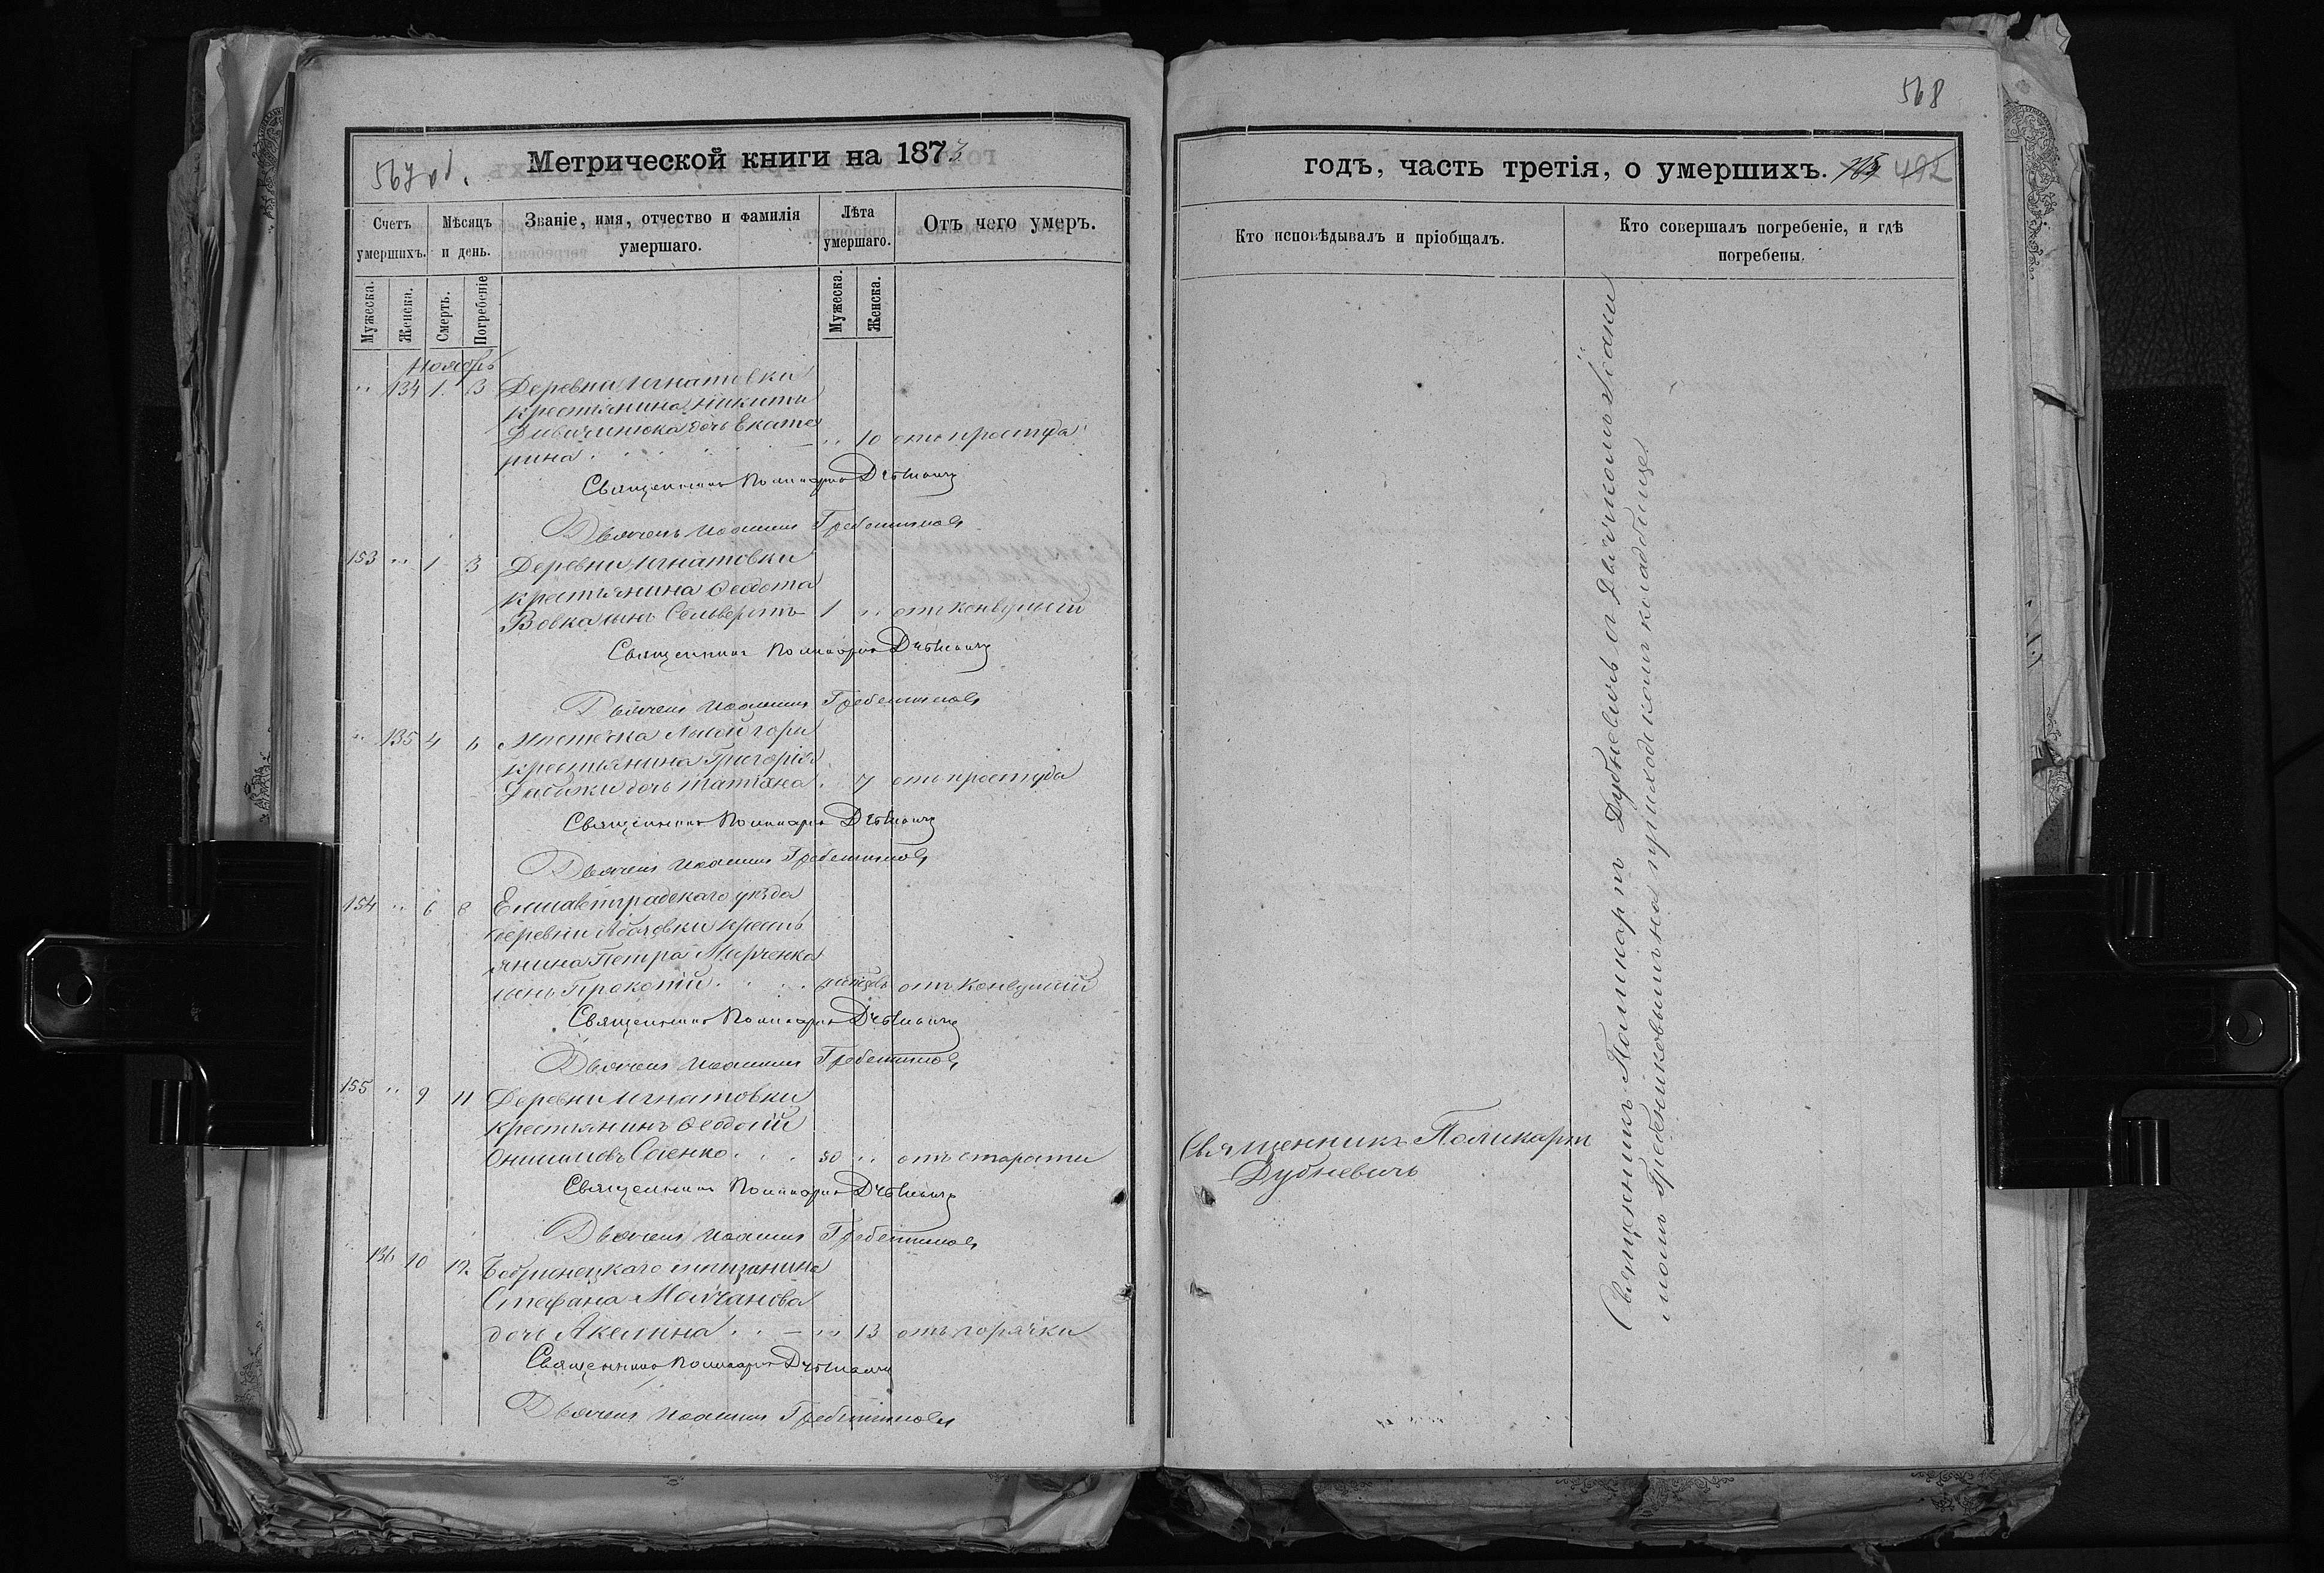 568
567 об.
Метрической книги на 1873
годъ, часть третія, о умершихъ. 492
Счетъ умершихъ.
Мѣсяцъ и день.
Званіе, имя, отчество и фамилія умершаго.
Лѣта умершаго.
Отъ чего умеръ.
Кто исповѣдывалъ и пріобщалъ.
Кто совершалъ погребеніе, и гдѣ погребены.
Мужеска.
Женска.
Смерть.
Погребеніе
Мужеска.
Женска.
Ноябрь
" 134 1. 3 Деревни Игнатовки
крестьянина Никиты
дочь Екате
рина . . . . . - " 10 отъ простуда
Священникъ Поликарпъ Дубневичъ
Дьячекъ Иоаннъ Гребенниковъ
153 " 1 3 Деревни Игнатовки
крестьянина Феодота
Вовка сынъ Сельверстъ 1 " отъ конвульсій
Священникъ Поликарпъ Дубневичъ
Дьячекъ Иоаннъ Гребенниковъ
" 135 4 6 Мистечка Лысой горы
крестьянина Григорія
дочь Татіана . 7 отъ простуда
Священникъ Поликарпъ Дубневичъ
Дьячекъ Иоаннъ Гребенниковъ
154 " 6 8 Елисаветградскаго уѣзда
деревни крестъ
янина Петра Марченка
сынъ Прокопій . . . . отъ конвульсій
Священникъ Поликарпъ Дубневичъ
Дьячекъ Иоаннъ Гребенниковъ
155 " 9 11 Деревни Игнатовки
крестьянинъ Феодосій
Онисимовъ Саенко . . . 50 " отъ старости
Священникъ Поликарпъ
Дубневичъ
Священникъ Поликарпъ Дубневичъ
Дьячекъ Иоаннъ Гребенниковъ
136 10 12 Бобринецкаго мещанина
Стефана Молчанова
дочь Акелина . . - " 13 отъ горячки
Священникъ Поликарпъ Дубневичъ
Дьячекъ Иоаннъ Гребенниковъ
Священникъ Поликарпъ Дубневичъ съ Дьячкомъ Іоаки
момъ Гребенниковымъ на приходскомъ кладбище